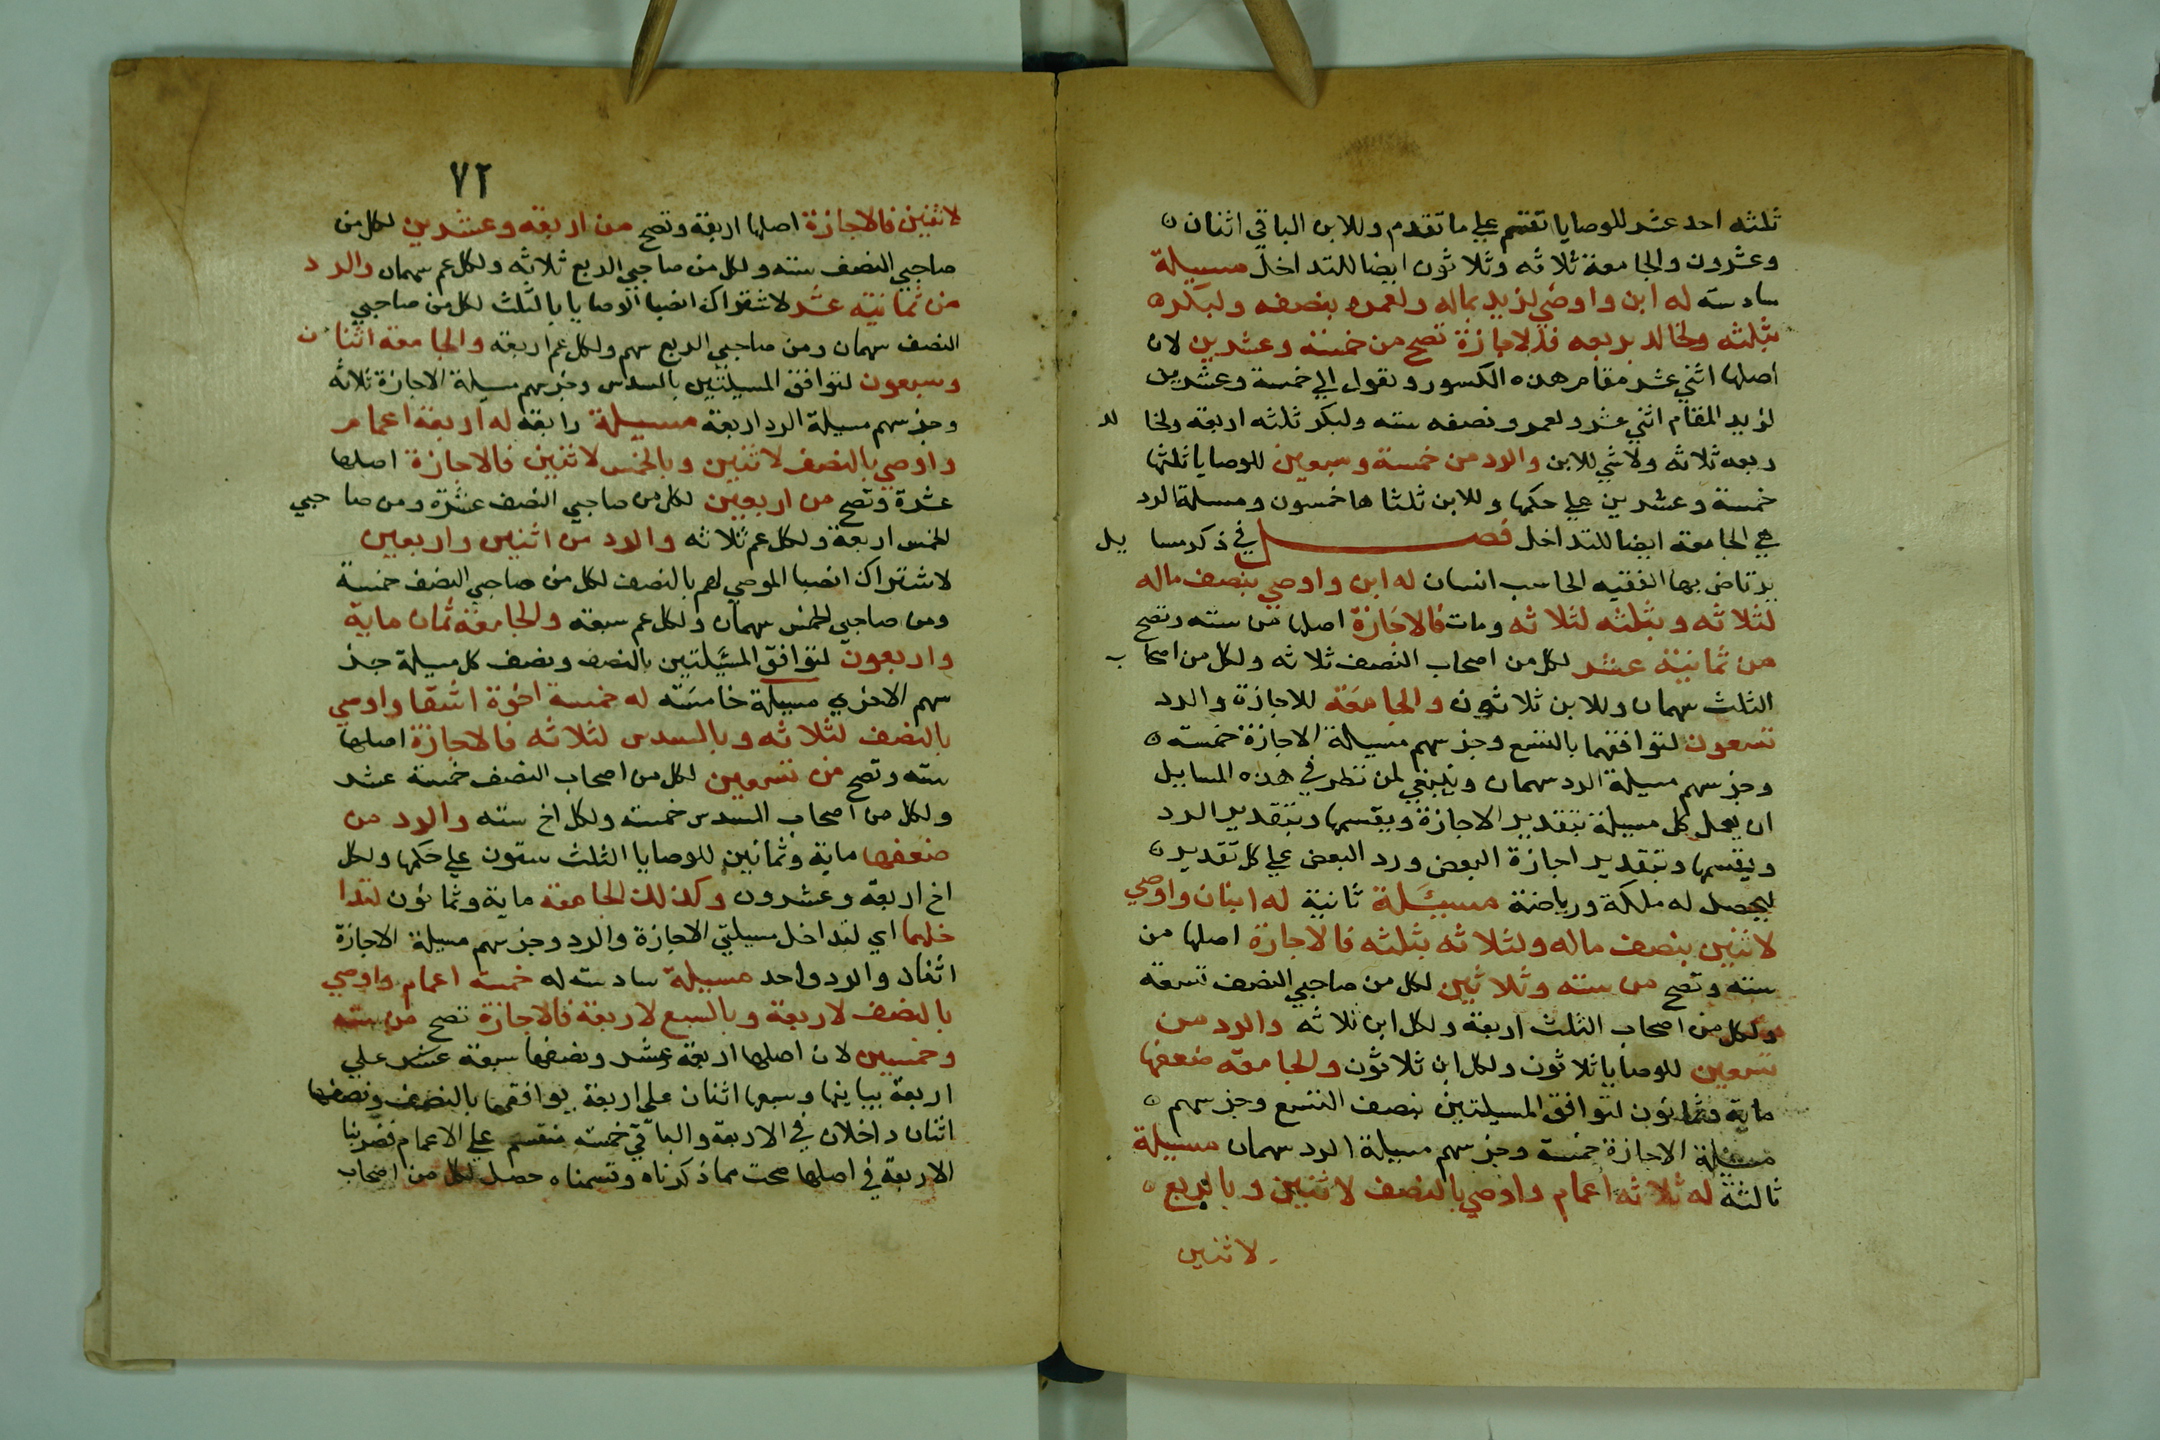 ثلثه احد عشر للوصايا تقسم علي ما تقدم وللابن الباقي اثنان
وعشرون والجامعة ثلاثه وثلاثون ايضا للتداخل مسيلة
سادسه له ابن واوصي لزيد بماله ولعمرو بنصفه ولبكر
بثلثه ولخالد بربعه فالاجازة تصح من خمسة وعشرين لان
اصلها اثني عشر مقام هذه الكسور وتعول الي خمسة وعشرين
لزيد المقام اثني عشر ولعمرو نصفه سته ولبكر ثلثه اربعه ولخا لد
ربعه ثلاثه ولا شي للابن والرد من خمسة وسبعين للوصايا ثلثها
خمسة وعشرين علي حكمها وللابن ثلثاها خمسون ومسلة الرد
هي الجامعه ايضا للتداخل فصل في ذكر مسا يل
يرتاض بها الفقيه الحاسب انسان له ابن واوصي بنصف ماله
لثلاثه وبثلثه لثلاثه ومات فالاجازة اصلها من سته وتصح
من ثمانية عشر لكل من اصحاب النصف ثلاثه ولكل من اصحا ب
الثلث سهمان وللابن ثلاثون والجامعة للاجازة والرد
تسعون لتوافقهما بالتسع وجز سهم مسيلة الاجازة خمسه
وجز سهم مسيلة الرد سهمان وينبغي لمن نظر في هذه المسايل
ان يعمل كل مسيلة بتقدير الاجازة ويقسمها وبتقدير الرد
ويقسمها وبتقدير اجازة البعض ورد البعض علي كل تقدير
ليحصل له ملكة ورياضة مسيلة ثانية له ابنان واوصي
لاثنين بنصف ماله ولثلاثه بثلثه فالاجازة اصلها من
سته وتصح من سته وثلاثين لكل من صاحبي النصف تسعة
ولكل من اصحاب الثلث اربعة ولكل ابن ثلاثه والرد من
تسعين للوصايا ثلاثون ولكل ابن ثلاثون والجامعه ضعفها
ماية وثمانون لتوافق المسيلتين بنصف التسع وجز سهم
مسيلة الاجازة خمسة وجز سهم مسيلة الرد سهمان مسيلة
ثالثة له ثلاثه اعمام واوصي بالنصف لاثنين وبالربع
لاثنين
٧٢
لاثنين فالاجازة اصلها اربعة وتصح من اربعه وعشرين لكل من
صاحبي النصف سته ولكل من صاحبي الربع ثلاثه ولكل عم سهمان والرد
من ثمانية عشر لاشتراك انصبا الوصايا بالثلث لكل من صاحبي
النصف سهمان ومن صاحبي الربع سهم ولكل عم اربعة والجامعة اثنان
وسبعون لتوافق المسيلتين بالسدس وجز سهم مسيلة الاجازة ثلاثه
وجز سهم مسيلة الرد اربعة مسيلة رابعة له اربعة اعمام
واوصي بالنصف لاثنين وبالخمس لاثنين فالاجازة اصلها
عشرة وتصح من اربعين لكل من صاحبي النصف عشرة ومن صا حبي
الخمس اربعة ولكل عم ثلاثه والرد من اثنين واربعين
لاشتراك انصبا الموصي لهم بالنصف لكل من صاحبي النصف خمسة
ومن صاحبي الخمس سهمان ولكل عم سبعه والجامعة ثمان ماية
واربعون لتوافق المسيلتين بالنصف ونصف كل مسيلة جز
سهم الاخري مسيلة خامسه له خمسة اخوة اشقا واوصي
بالنصف لثلاثه وبالسدس لثلاثه فالاجازة اصلها
سته وتصح من تسعين لكل من اصحاب النصف خمسة عشر
ولكل من اصحاب السدس خمسه ولكل اخ سته والرد من
ضعفها ماية وثمانين للوصايا الثلث ستون علي حكمها ولكل
اخ اربعة وعشرون وكذلك الجامعة ماية وثمانون لتدا
خلهما اي لتداخل مسيلتي الاجازة والرد وجز سهم مسيلة الاجازة
اثنان والرد واحد مسيلة سادسه له خمسه اعمام واوصي
بالنصف لاربعة وبالسبع لاربعة فالاجازة تصح من سته
وخمسين لان اصلها اربعة عشر ونصفها سبعة عشر علي
اربعة يباينها وسبعها اثنان علي اربعة يوافقهما بالنصف ونصفها
اثنان داخلان في الاربعة والباقي خمسه منقسم علي الاعمام فضربنا
الاربعة في اصلها صحت مما ذكرناه وقسمناه حصل لكل من اصحاب